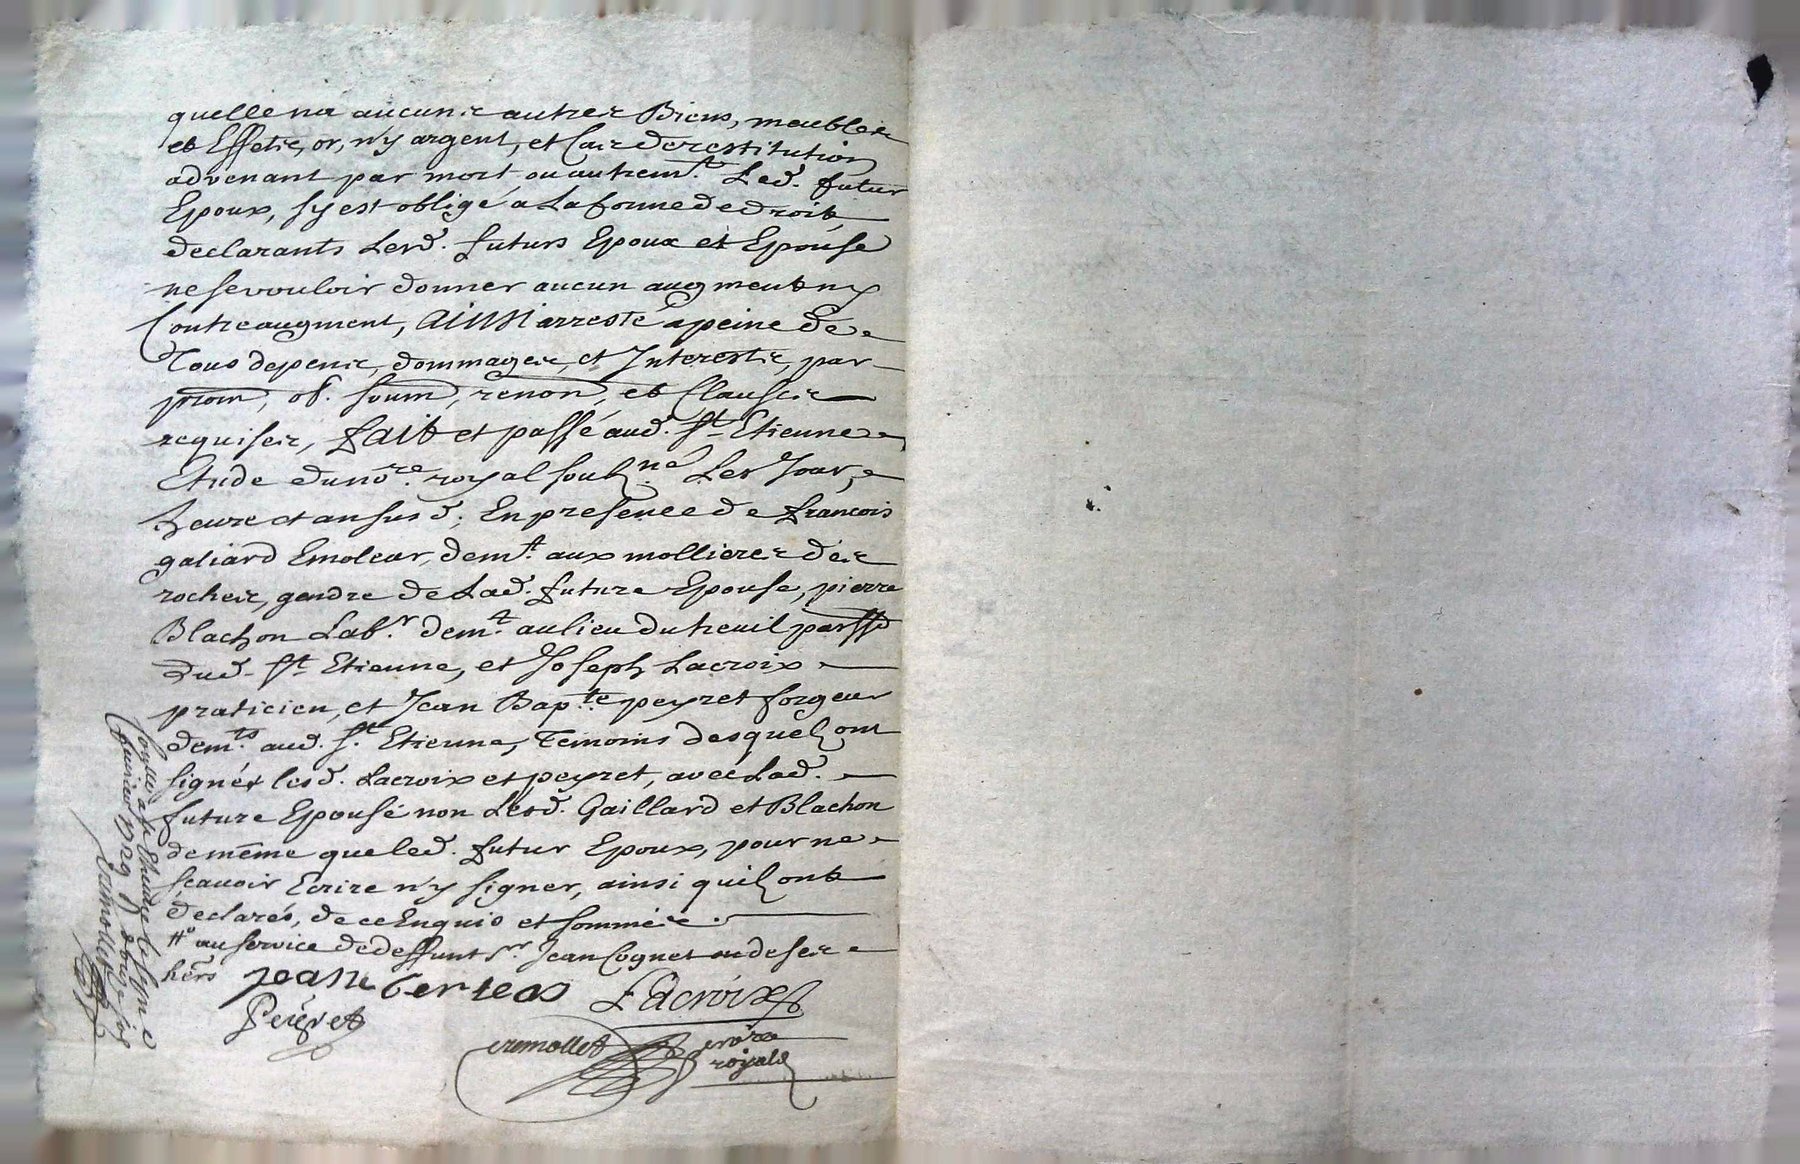 quelle na aucunes autres Biens, meubles
et Effets, or, n'y argent, et Cas de restitution
advenant par mort ou autremt. Led. futur
Epoux, s'y est obligé a La forme de droit
declarants Lesd. futurs Epoux et Epouse
ne se vouloir donner aucun augment ny
Contreaugment, Ainsi arresté a peine de
Tous depens, dommages, et Interests, par
prom, ob. soum, renon, et Clauses
requises, fait et passé aud. St Etienne
Etude du nore. royal soubzne. Les Jour,
heure et an susd; En presence de francois
galiard Emoleur, demt. aux mollieres des
rochers, gendre de Lad. future Epouse, pierre
Blachon Labr. demt. au lieu du treuil parsse
dud. St Etienne, et Joseph Lacroix
praticien, et Jean Bapte peyret forgeur
demts aud. St. Etienne, Temoins desquelz ont
signés lesd. Lacroix et peyret, avec Lad.
future Epouse non Lesd. Gaillard et Blachon
de même que led. futur Epoux, pour ne
scavoir Ecrire n'y signer, ainsi quilz ont
declarés, de ce Enquis et sommés.
# au service de deffunt Sr. Jean Cognet ou de ses
hers
Lacroix
Peiret
cremollet nore
royal